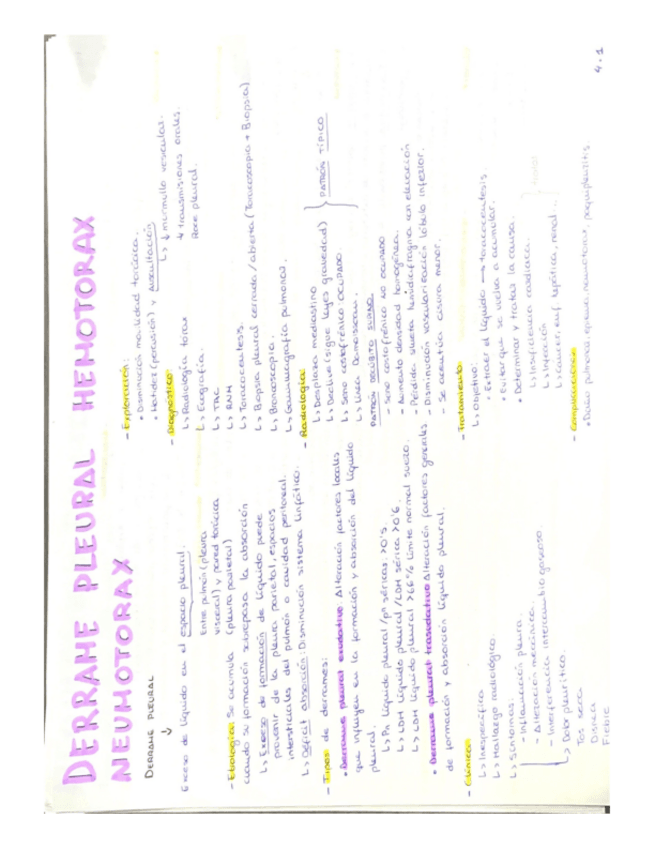 DERRAME PLEURAL HEMOTORAX
NEUMOTORAX
DERRAME PLEURAL
↓
Exceso de líquido en el espacio pleural.
Entre pulmón (pleura
visceral) y pared torácica
(pleura parietal)
- Etiología: Se acumula
cuando su formación sobrepasa la absorción
↳ Exceso de formación de líquido puede
provenir de la pleura parietal, espacios
intersticiales del pulmón o cavidad peritoneal.
↳ Déficit absorción: Disminución sistema linfático.
- Tipos de derrames:
• Derrame pleural exudativo: Alteración factores locales
que influyen en la formación y absorción del líquido
pleural.
↳ Pn líquido pleural/pn séricas >0'5.
↳ LDH líquido pleural/LDH sérica >0'6.
↳ LDH líquido pleural >66% límite normal suero.
• Derrame pleural trasudativo Alteración factores generales
de formación y absorción líquido pleural.
- Clínica:
↳ Inespecífica
↳ Hallazgo radiológico
↳ Síntomas:
- Inflamación pleura
- Alteración mecánica.
- Interferencia intercambio gaseoso.
↳ Dolor pleurítico.
Tos seca
Disnea
Fiebre
- Exploración:
• Disminución movilidad torácica.
• Matidez (percusión) y auscultación
↳ ↓ murmullo vesicular.
↓ transmisiones orales.
Roce pleural.
- Diagnóstico:
↳ Radiología tórax
↳ Ecografía.
↳ TAC
↳ RNM
↳ Toracocentesis.
↳ Biopsia pleural cerrada/abierta (Toracoscopia + Biopsia)
↳ Broncoscopia.
↳ Gammagrafía pulmonar.
- Radiología:
↳ Desplaza mediastino
↳ Declive (sigue leyes gravedad)
↳ Seno costofrénico: OCUPADO
↳ Línea Damosieau.
PATRÓN TÍPICO
PATRÓN DECÚBITO SUPINO
- Seno costofrénico no ocupado
- Aumento densidad homogénea.
- Pérdida silueta hemidiafragma con elevación
- Disminución vascularización lóbulo inferior.
- Se acentúa cisura menor.
- Tratamiento:
↳ Objetivo:
• Extraer el líquido → toracocentesis
• Evitar que se vuelva a acumular.
• Determinar y tratar la causa.
↳ Insuficiencia cardiaca.
↳ Infección
↳ Cáncer, enf. hepática, renal...
- Complicaciones:
• Daño pulmonar, epiema, neumotorax, paquipleuritis
4.1